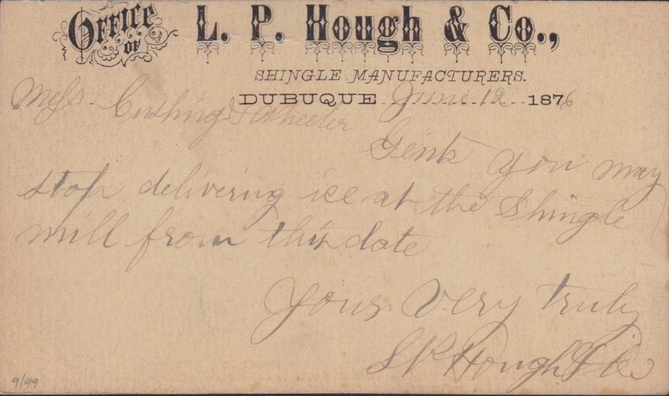 Office
of
L. P. Hough & Co.,
SHINGLE MANUFACTURERS.
DUBUQUE June 12 1876
Messs. Cushing & Wheeler
Gents you may
stop delivering ice at the Shingle
mill from this date
Yours Very truly
L P Hough & Co
9/99